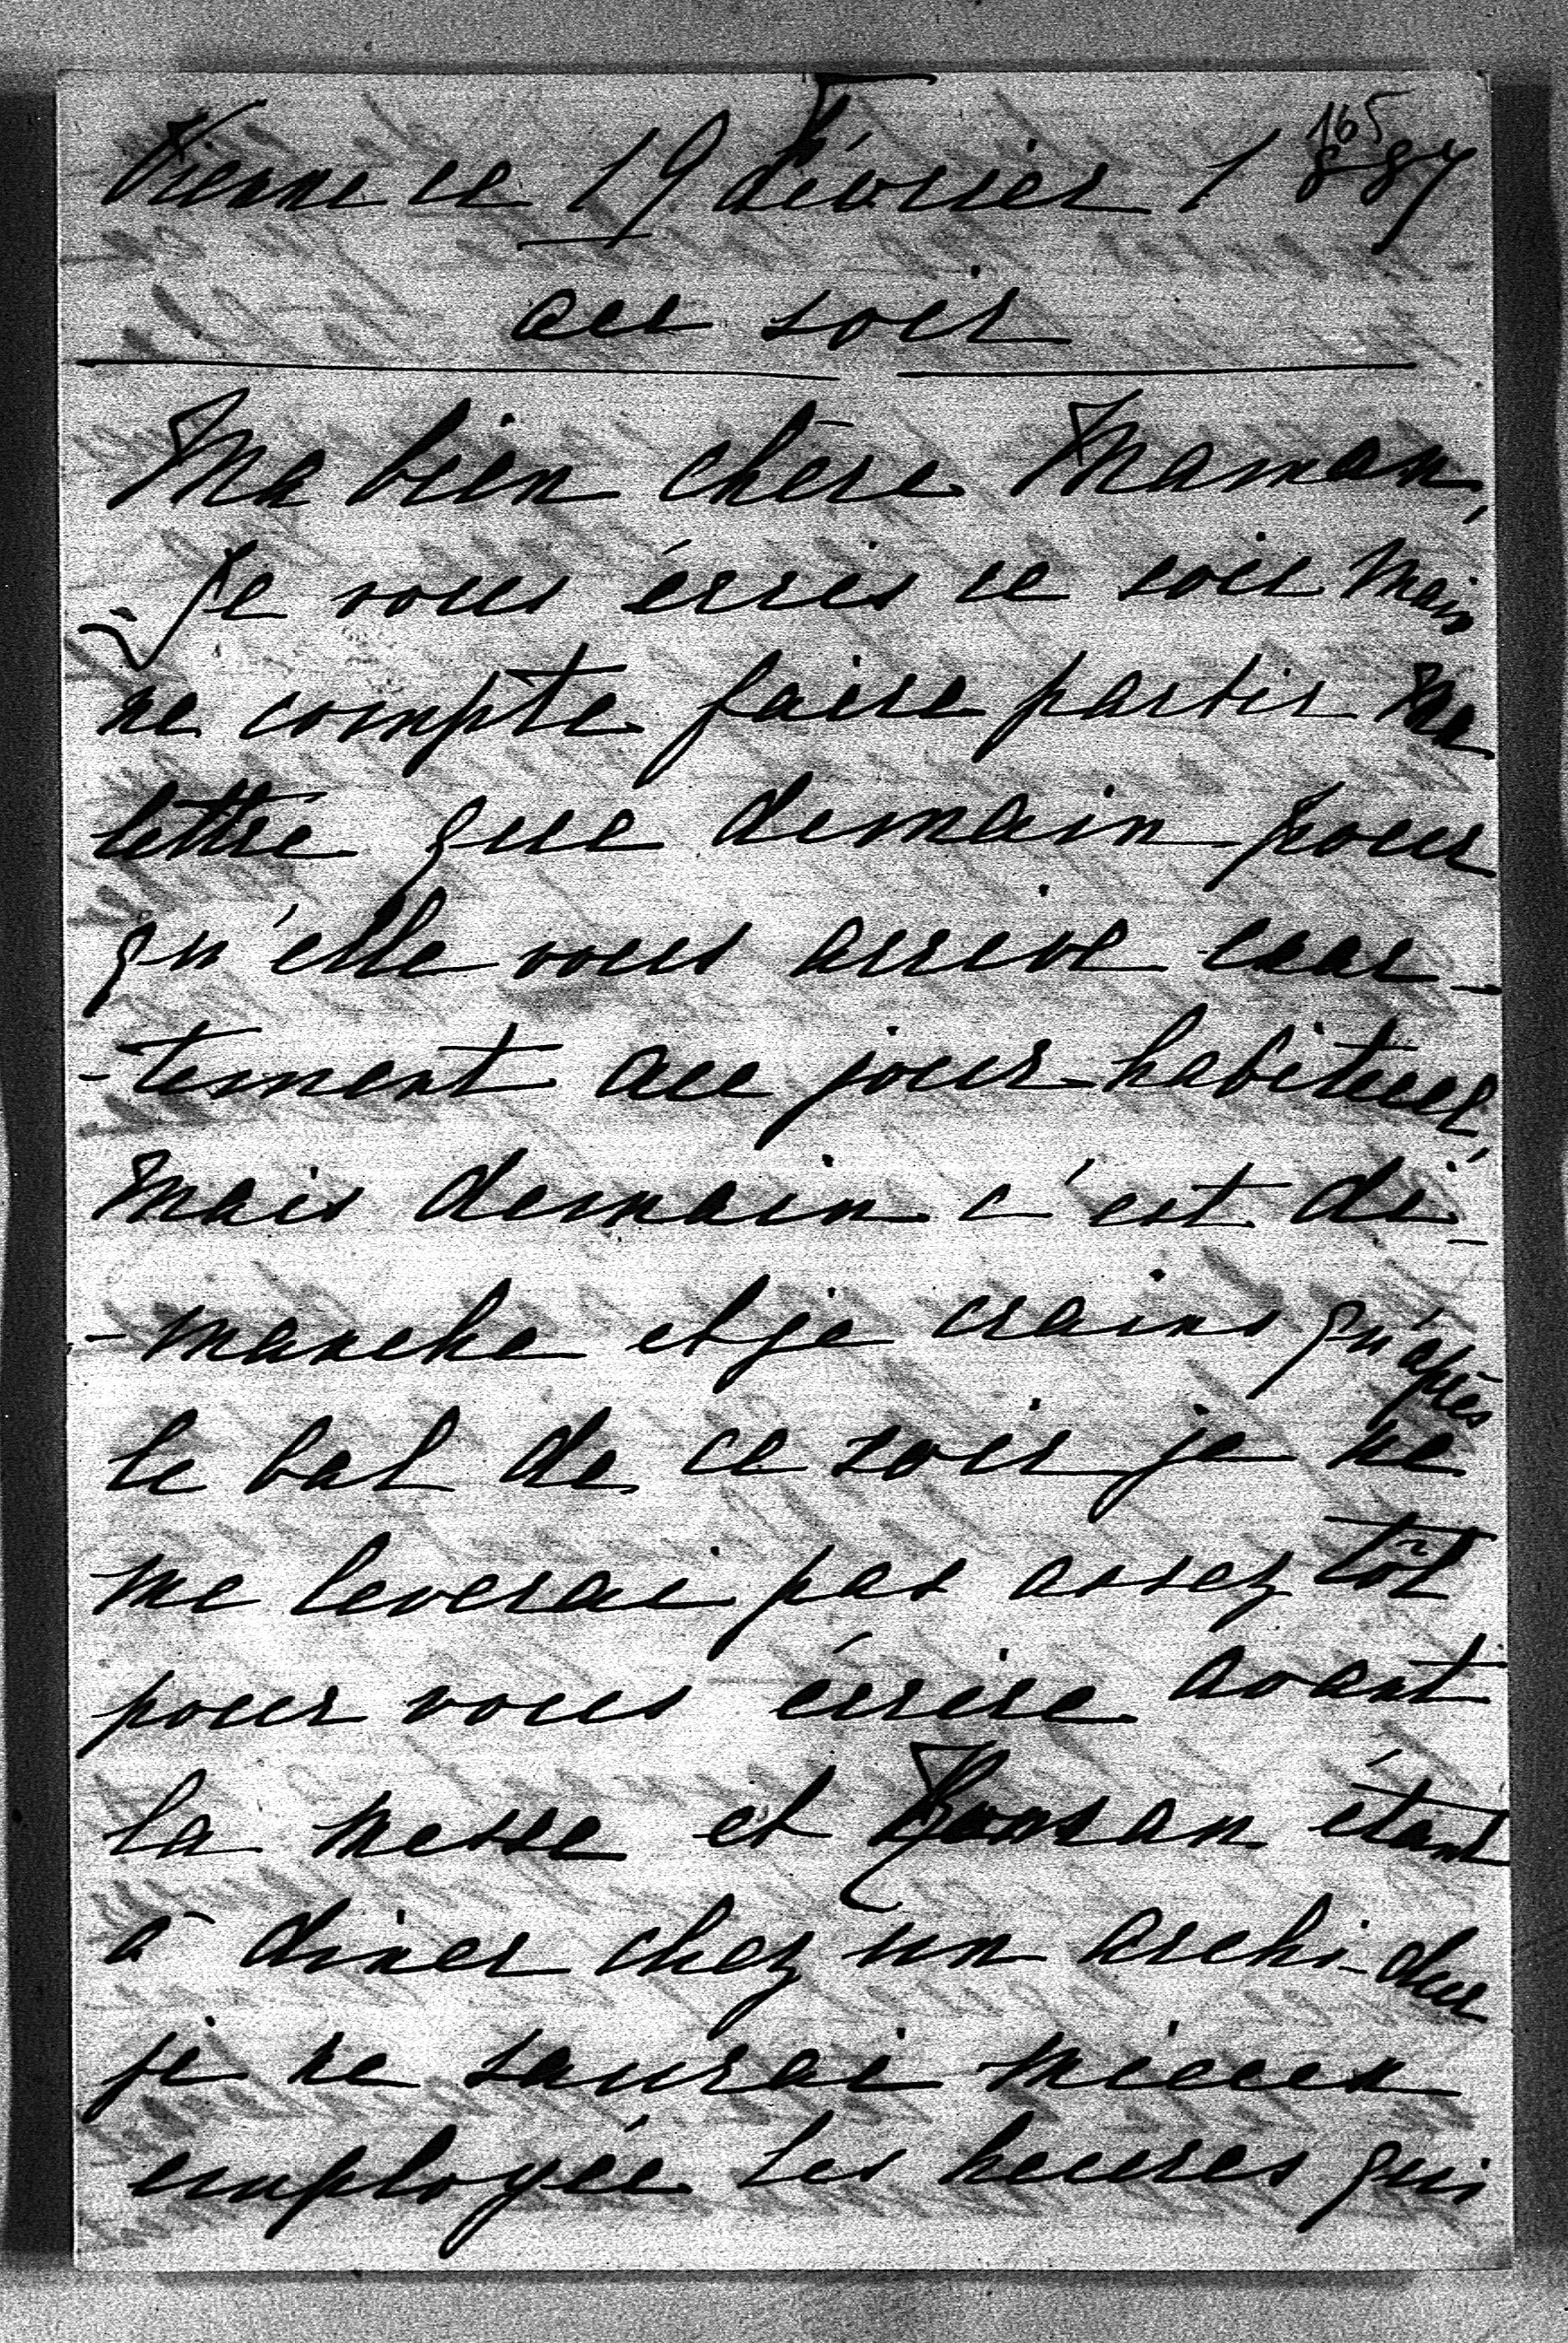 165
Vienne ce 19 février 1887
au soir
Ma bien chère Maman,
Je vous écris ce soir mais
ne compte faire partir ma
lettre que demain pour
qu'elle vous arrive exac-
-tement au jour habituel,
mais demain c'est di-
-manche et je crains qu'après
le bal de ce soir je ne
me leverai pas assez tôt
pour vous écrire avant
la messe et étant
à diner chez un archi-duc
je ne saurai mieux
employée les heures qui